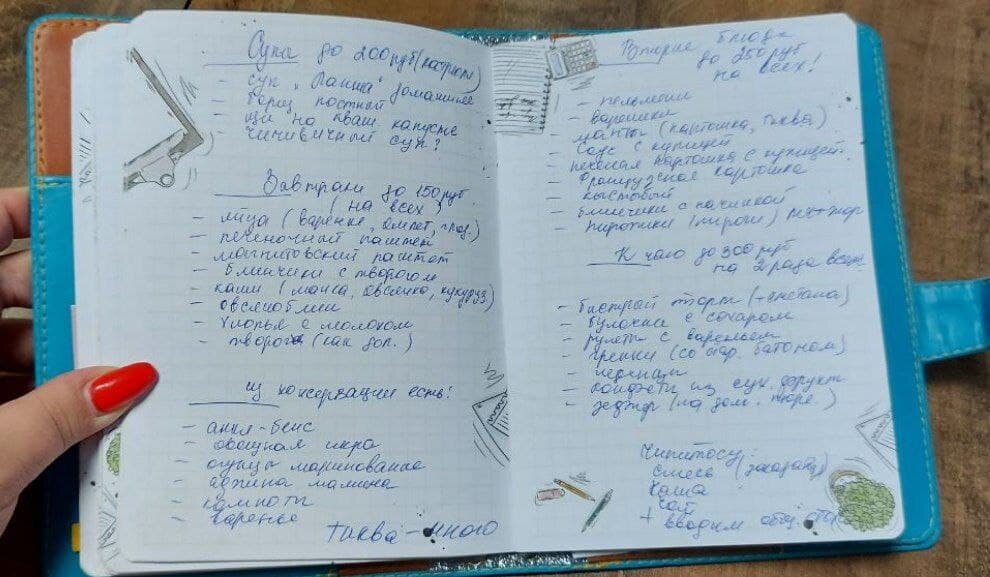 Супа до 200 руб (кастрюля)
- суп "Лапша" домашняя
- борщ постный
- щи на кваш капусте
- чичивичный суп?
Завтраки до 150 руб
(на всех)
- яйца (варёные, омлет, глаз.)
- печеночный паштет
- магнитовский паштет
- блинчики с творогом
- каши (манка, овсянка, кукуруз)
- овсяноблин
- хлопья с молоком
- творога (как доп.)
Из консервации есть!
- анкл-бенс
- овощная икра
- огурцы маринованные
- аджика малина
- компоты
- варенье
тыква - много
Вторые блюда
до 250 руб
на всех!
- пельмени
- вареники
- манты (картошка, тыква)
- соус с курицей
- печеная картошка с курицей
- Французская картошка
- кыстыбый
- блинчики с начинкой
- пирожки (пироги)
К чаю до 300 руб
на 2 раза всех
- быстрый торт (+сметана)
- булочки с сахаром
- рулеты с вареньем
- гренки (со стар. батоном)
- перепачи
- конфеты из сух. фрукт
- зефир (на дом. пюре.)
Чипитосу:
смесь (заказать)
каша
чай
+ вводим общ. стол